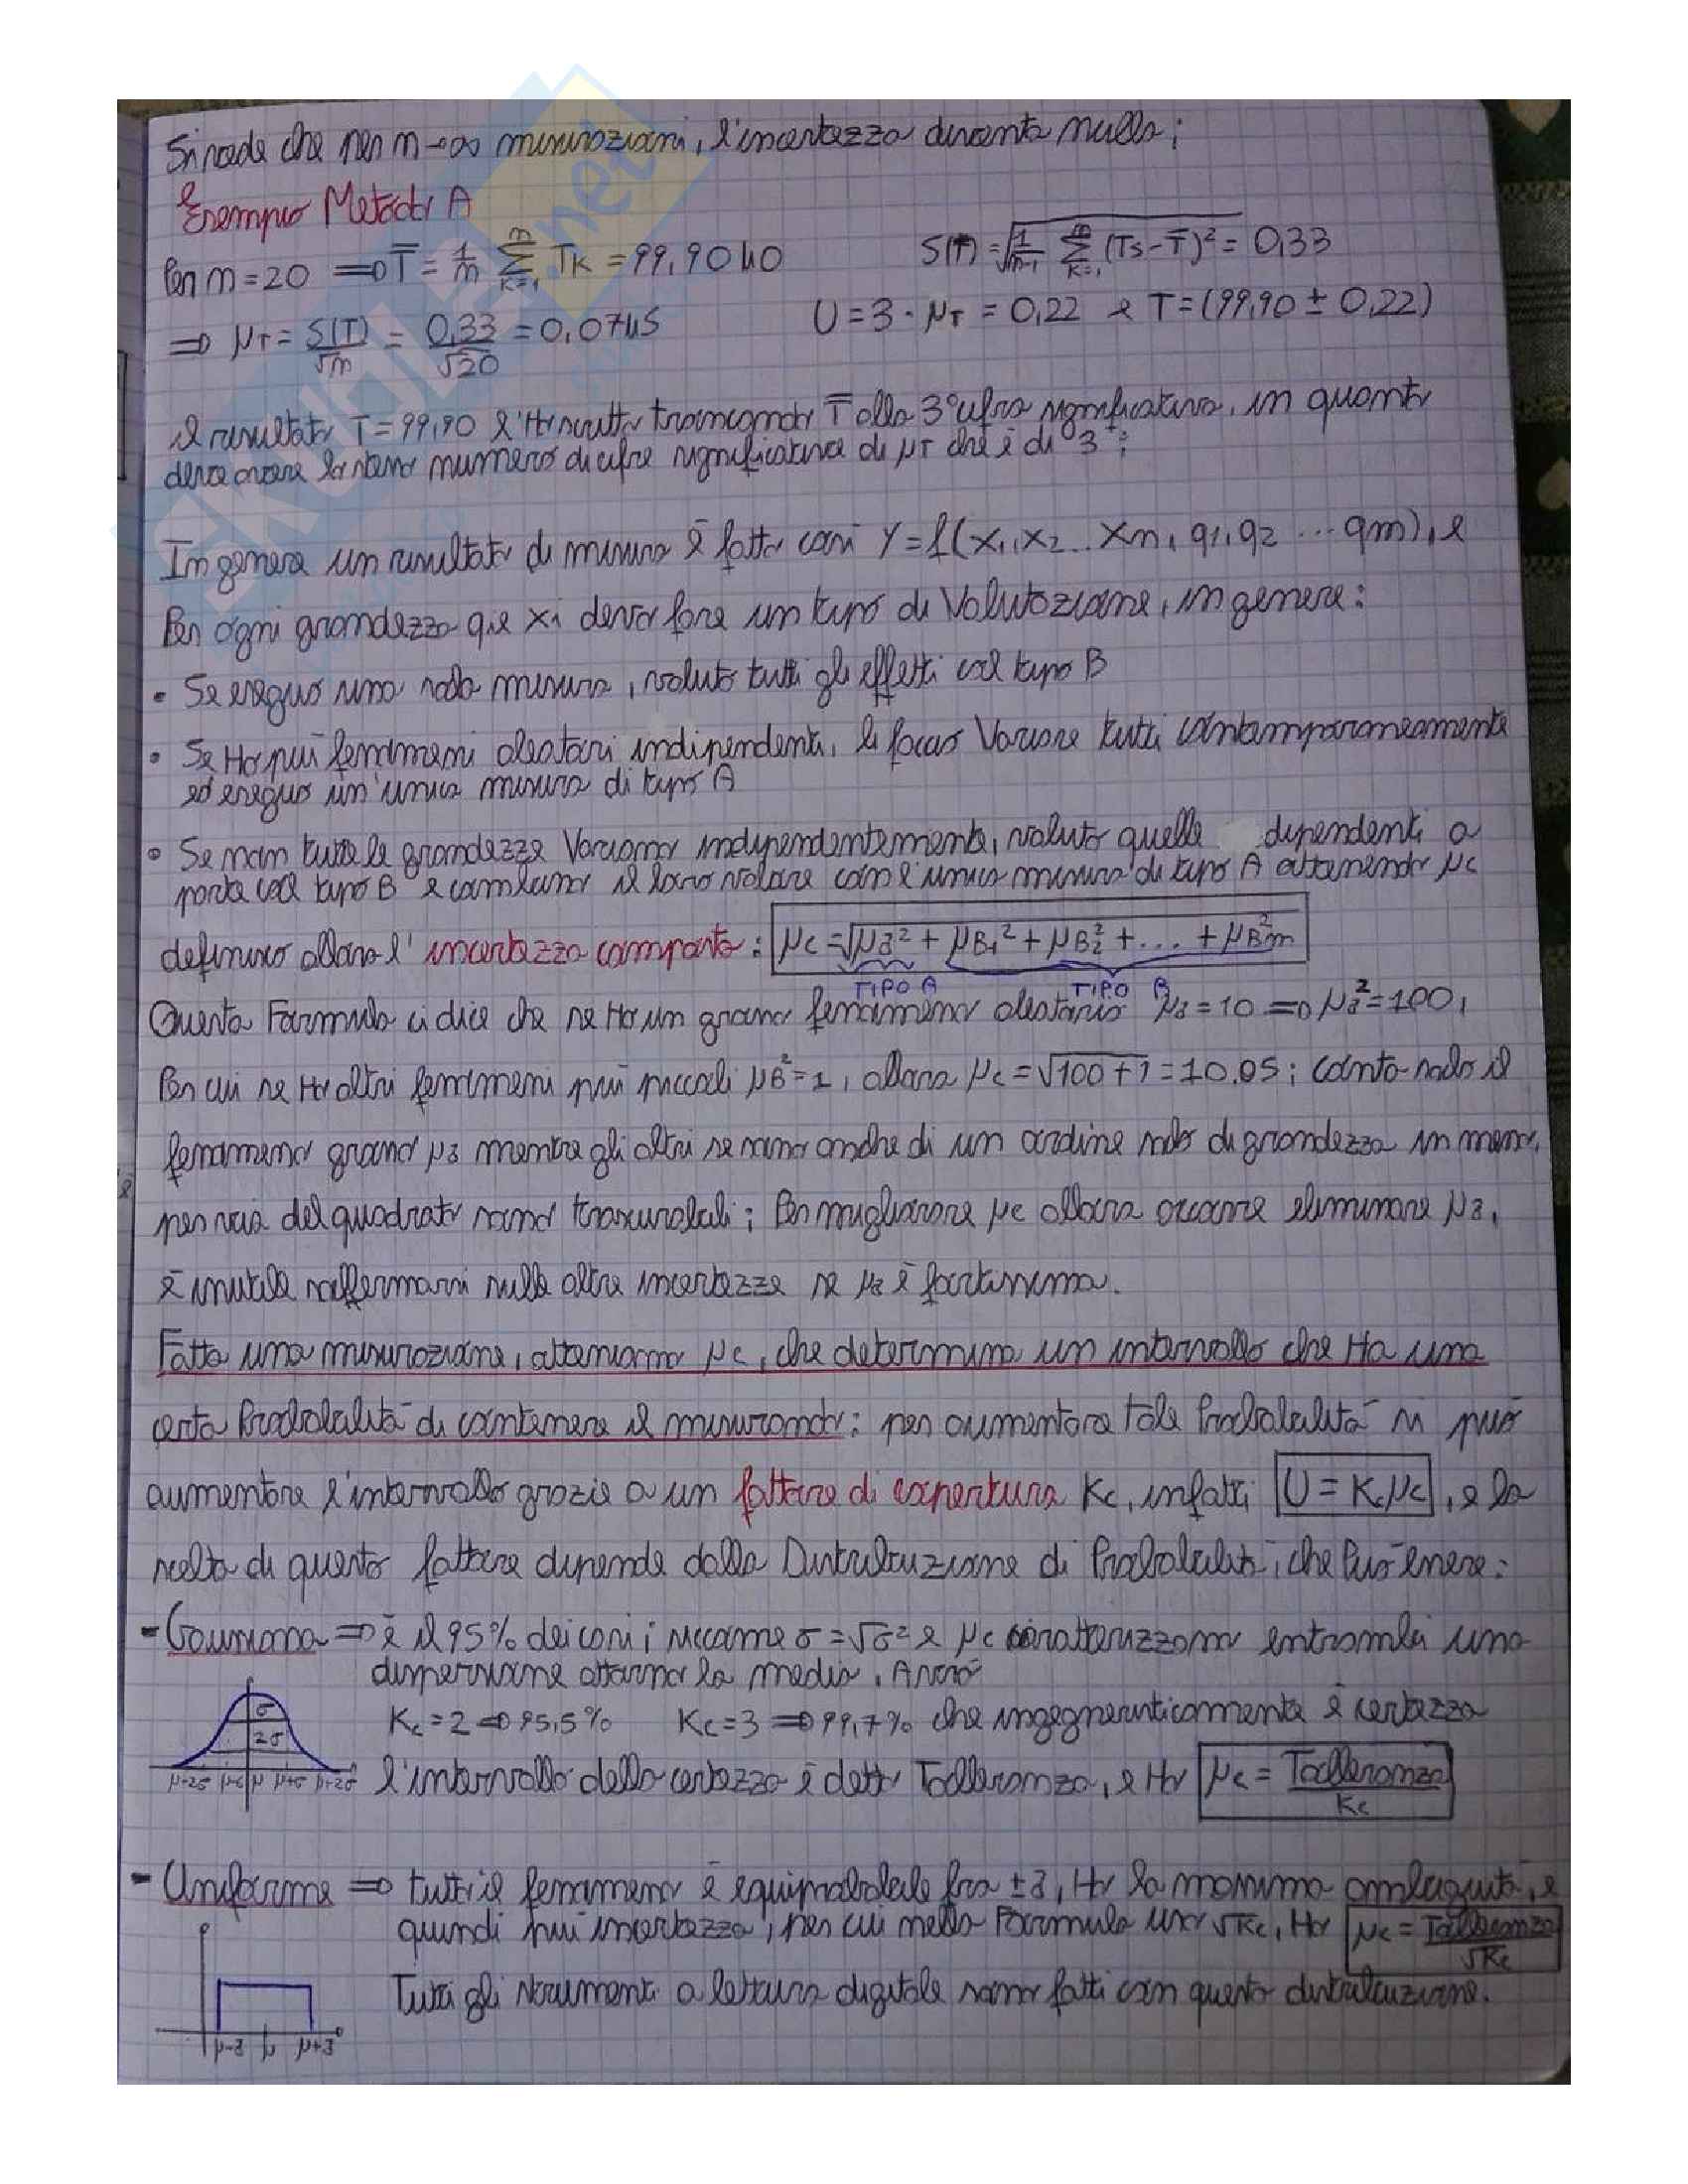 Si vede che per n→∞ misurazioni, l'incertezza diventa nulla;
Esempio Metodo A
Per n=20 ⇒ T̄ = 1/n ∑_{k=1}^{n} Tk = 99,9040
S(T) = √(1/(n-1) ∑_{k=1}^{n} (Ts-T̄)²) = 0,33
⇒ μT = S(T)/√n = 0,33/√20 = 0,0745
U = 3 · μT = 0,22 e T = (99,90 ± 0,22)
il risultato T=99,90 l'Ho scritto troncando T̄ alla 3° cifra significativa, in quanto
deve avere lo stesso numero di cifre significative di μT che è di "3";
In genere un risultato di misura è fatto così Y=f(x1,x2..xn,q1,q2...qm), e
Per ogni grandezza q e xi devo fare un tipo di Valutazione, in genere:
• Se eseguo una sola misura, valuto tutti gli effetti col tipo B
• Se Ho più fenomeni aleatori indipendenti, li faccio Variare tutti contemporaneamente
ed eseguo un'unica misura di tipo A
• Se non tutte le grandezze Variano indipendentemente, valuto quelle dipendenti a
parte col tipo B e combino il loro valore con l'unica misura di tipo A ottenendo μc
definisco allora l'incertezza composta: μc = √(μa² + μB1² + μB2² + ... + μBm²)
TIPO A TIPO B
Questa Formula ci dice che se Ho un grano fenomeno aleatorio μa=10 ⇒ μa²=100,
Per cui se Ho altri fenomeni più piccoli μB²=1, allora μc=√100+1=10.05; conta solo il
fenomeno grand μa mentre gli altri se sono anche di un ordine solo di grandezza in meno,
per via del quadrato sono trascurabili; Per migliorare μc allora occorre eliminare μa,
è inutile soffermarsi sulle altre incertezze se μa è fortissima.
Fatta una misurazione, otteniamo μc, che determina un intervallo che Ha una
certa Probabilità di contenere il misurando: per aumentare tale Probabilità si può
aumentare l'intervallo grazie a un fattore di copertura Kc, infatti U = Kcμc, e la
scelta di questo fattore dipende dalla Distribuzione di Probabilità, che Può essere:
- Gaussiana ⇒ è il 95% dei casi; siccome σ=√σ² e μc caratterizzano entrambi una
dispersione attorno la media, Avrò
Kc=2 ⇒ 95,5% Kc=3 ⇒ 99,7% che ingegneristicamente è certezza
l'intervallo della certezza è detto Tolleranza, e Ho μc = Tolleranza/Kc
σ
2σ
μ+2σ μ-σ μ μ+σ μ+2σ
- Uniforme ⇒ tutto il fenomeno è equiprobabile fra ±a, Ho la massima ambiguità, e
quindi più incertezza, per cui nella Formula uso √Kc, Ho μc = Tolleranza/√Kc
Tutti gli strumenti a lettura digitale sono fatti con questa distribuzione.
P
μ-a μ μ+a
SKUOLA.net